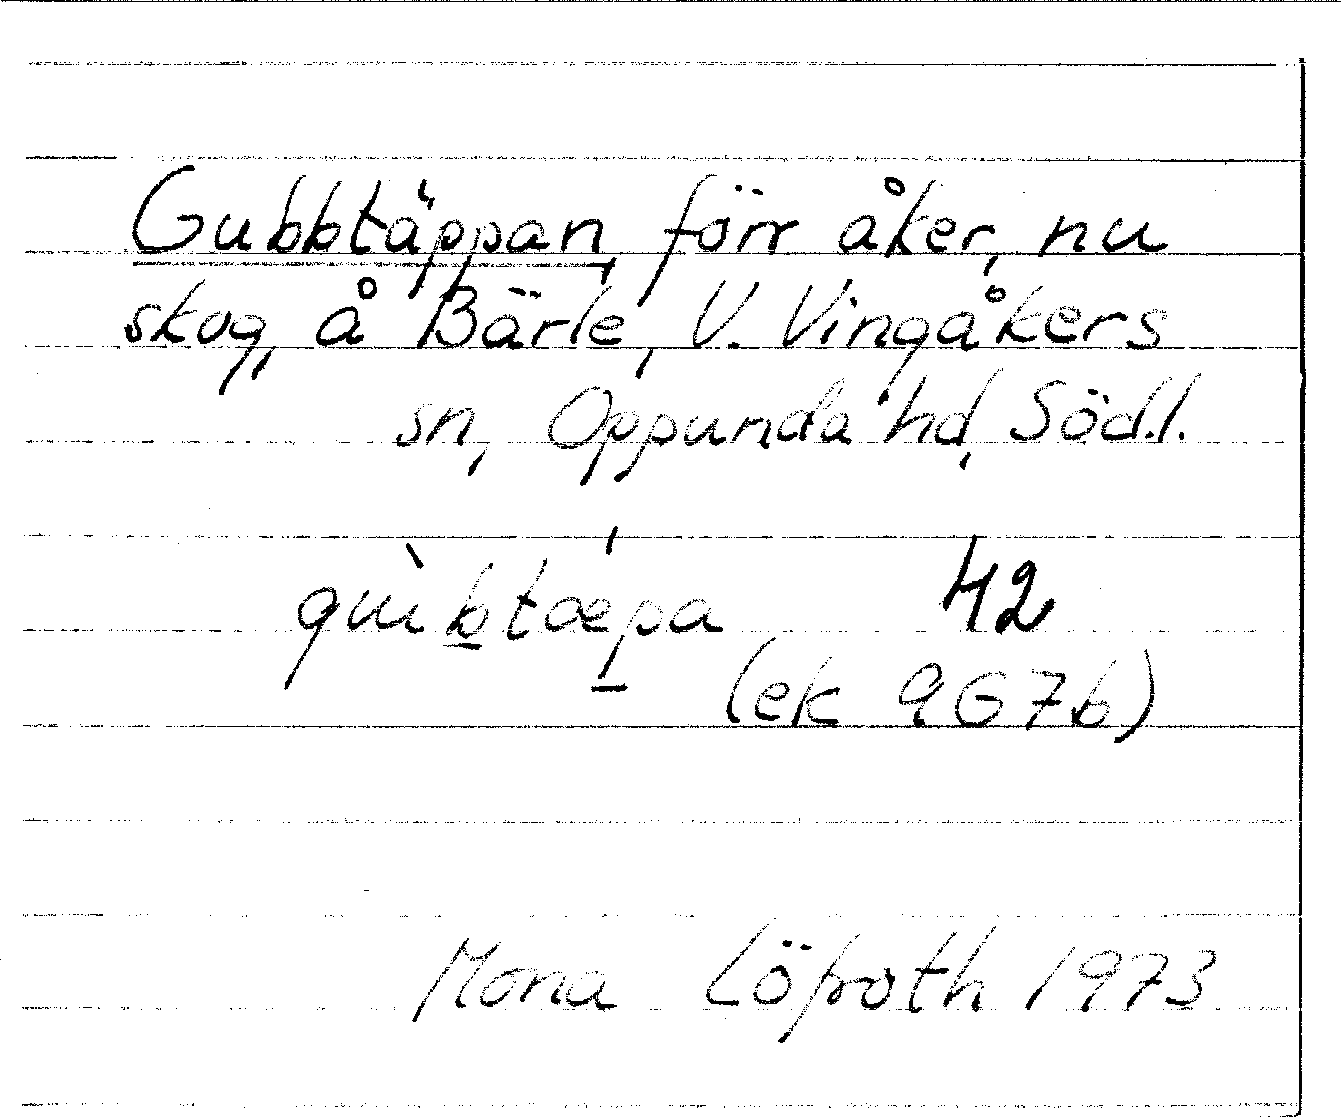 Gubbtäppan, förr åker, nu
skog, å Bärle, V. Vingåkers
sn, Oppunda hd, Södl.
gùb̲tæ̍p̲a 42
(ek 9G7b)
Mona Löfroth 1973